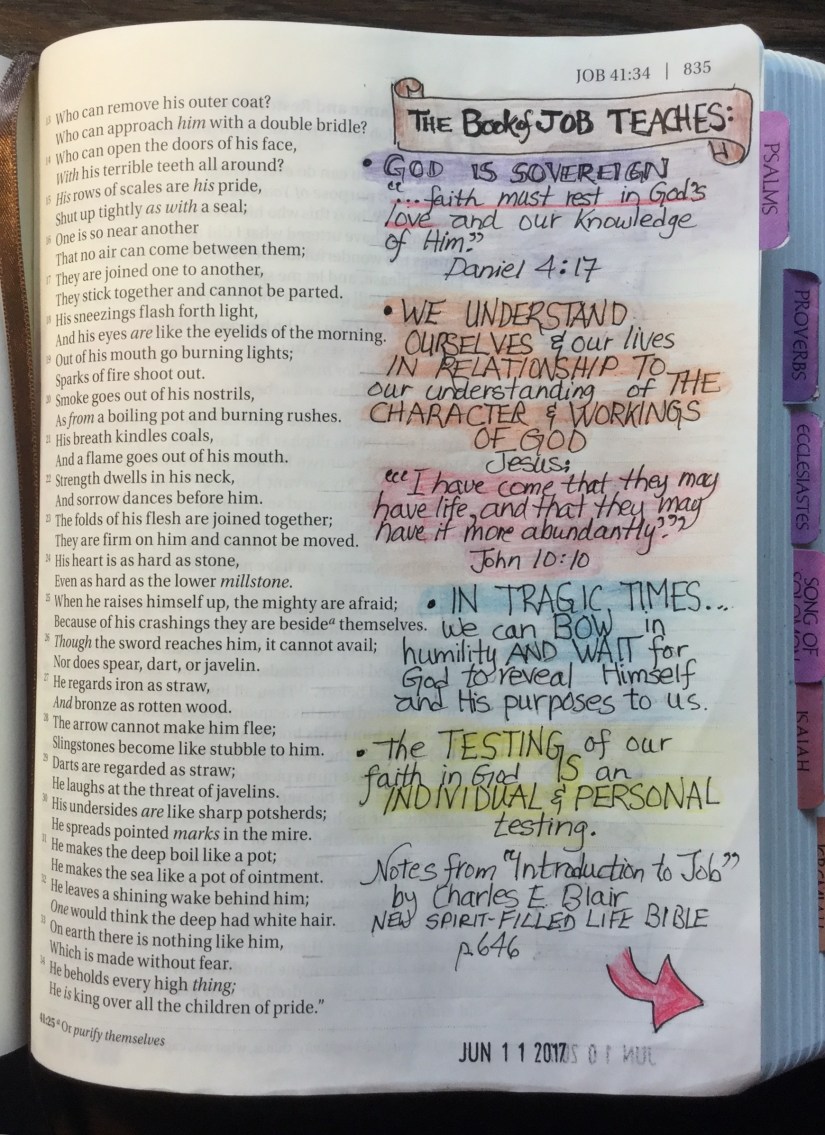 JOB 41:34 | 835
13 Who can remove his outer coat?
Who can approach him with a double bridle?
14 Who can open the doors of his face,
With his terrible teeth all around?
15 His rows of scales are his pride,
Shut up tightly as with a seal;
16 One is so near another
That no air can come between them;
17 They are joined one to another,
They stick together and cannot be parted.
18 His sneezings flash forth light,
And his eyes are like the eyelids of the morning.
19 Out of his mouth go burning lights;
Sparks of fire shoot out.
20 Smoke goes out of his nostrils,
As from a boiling pot and burning rushes.
21 His breath kindles coals,
And a flame goes out of his mouth.
22 Strength dwells in his neck,
And sorrow dances before him.
23 The folds of his flesh are joined together;
They are firm on him and cannot be moved.
24 His heart is as hard as stone,
Even as hard as the lower millstone.
25 When he raises himself up, the mighty are afraid;
Because of his crashings they are beside a themselves.
26 Though the sword reaches him, it cannot avail;
Nor does spear, dart, or javelin.
27 He regards iron as straw,
And bronze as rotten wood.
28 The arrow cannot make him flee;
Slingstones become like stubble to him.
29 Darts are regarded as straw;
He laughs at the threat of javelins.
30 His undersides are like sharp potsherds;
He spreads pointed marks in the mire.
31 He makes the deep boil like a pot;
He makes the sea like a pot of ointment.
32 He leaves a shining wake behind him;
One would think the deep had white hair.
33 On earth there is nothing like him,
Which is made without fear.
34 He beholds every high thing;
He is king over all the children of pride."
41:25 a Or purify themselves
THE Book of JOB TEACHES:
• GOD IS SOVEREIGN
"...faith must rest in God's
love and our knowledge
of Him."
Daniel 4:17
• WE UNDERSTAND
OURSELVES & our lives
IN RELATIONSHIP TO
our understanding of THE
CHARACTER & WORKINGS
OF GOD
Jesus:
"'I have come that they may
have life, and that they may
have it more abundantly.'"
John 10:10
• IN TRAGIC TIMES...
we can BOW in
humility AND WAIT for
God to reveal Himself
and His purposes to us.
• the TESTING of our
faith in God IS an
INDIVIDUAL & PERSONAL
testing.
Notes from "Introduction to Job"
by Charles E. Blair
NEW SPIRIT-FILLED LIFE BIBLE
p.646
JUN 1 1 2017
PSALMS
PROVERBS
ECCLESIASTES
SONG OF
SOLOMON
ISAIAH